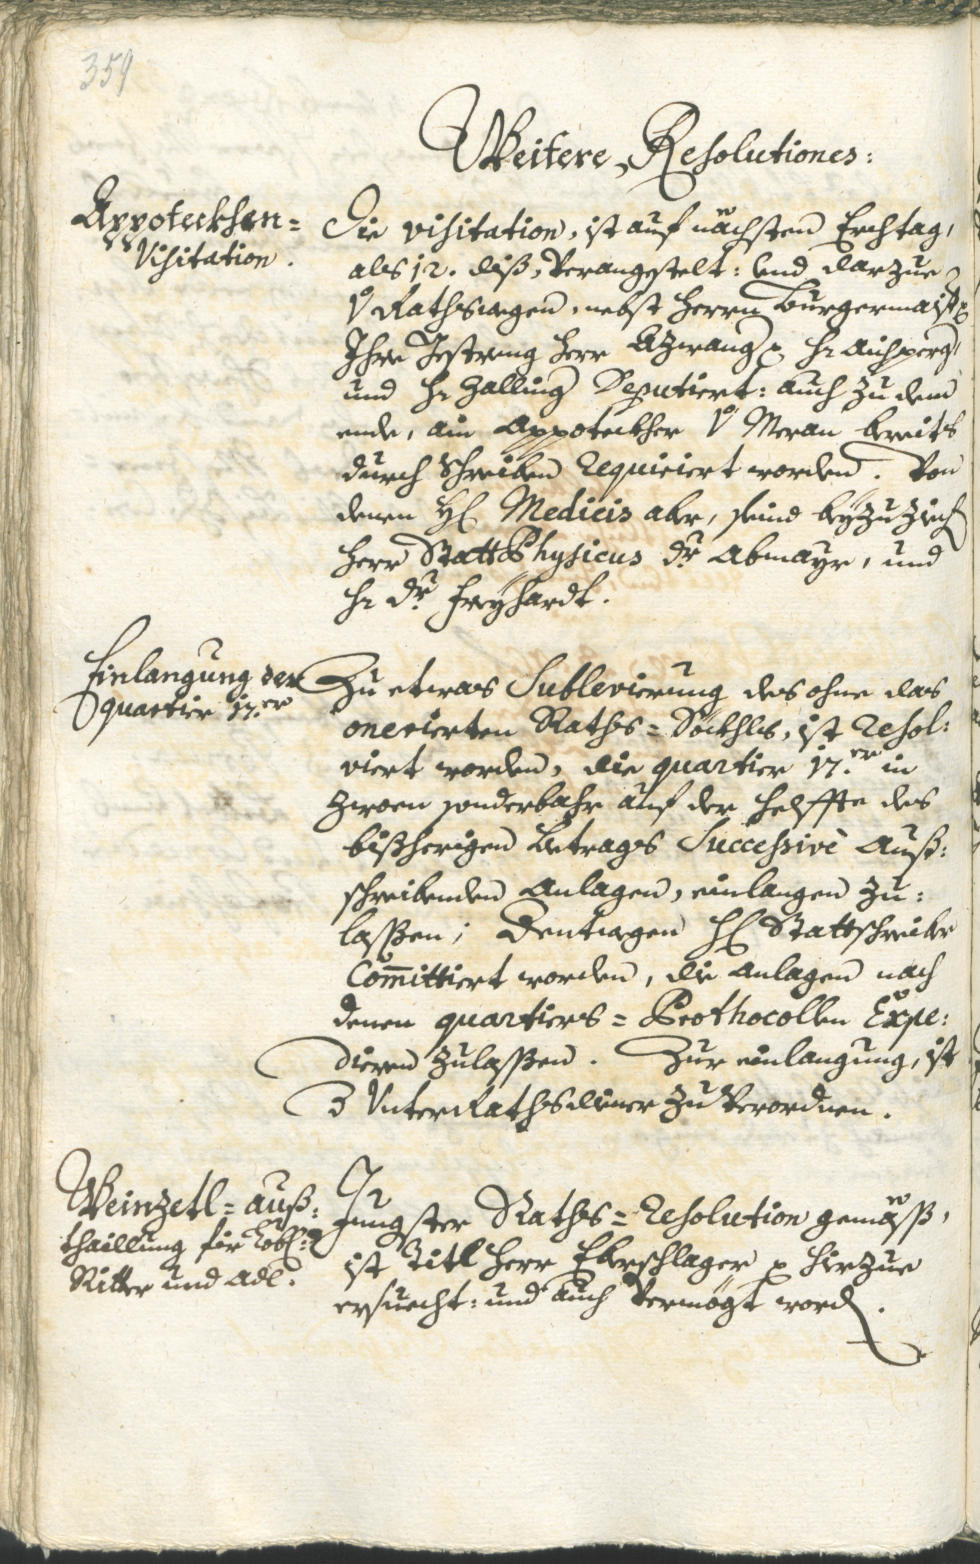 359
Weitere Resolutiones:
Appoteckhen=
Visitation.
Die visitation, ist auf nächsten Erchtag,
als 12. diß, verangestelt: und darzue
v Rathswegen, nebst herrn Burgermaister
Ihro Gestreng herr Azwang p hr Auhperg,
und hr Zalling Deputiert: auch zu dem
ende, ain Appoteckher v Meran bereits
durch Schreiben requiriert worden. Von
denen H Medicis aber, seind beyzuziech
herr StattPhysicus Dr Abmayr, und
hr Dr Freyhardt.
Einlangung der
quartier 17.er
Zu etwas Sublevierung des ohne das
onerierten Raths=Söckhls, ist resol:
viert worden, die quartier 17.er in
zwoen sonderbahr auf der helffte des
bißherigen Betrags Successivè auß:
schreibenden Anlagen, einlangen zu:
lassen; Dentwegen H Stattschreiber
Committiert worden, die Anlagen nach
denen quartiers=Prothocollen Expe:
dieren zulassen. Zur einlangung, ist
3 Unter Rathsdiener zu verordnen.
Weinzetl=auß:
thaillung für Löbl:
Ritter und Adl.
Jungster Raths=resolution gemäß,
ist Titl herr Eberschlager p hierzue
ersuecht: und auch vermögt word.